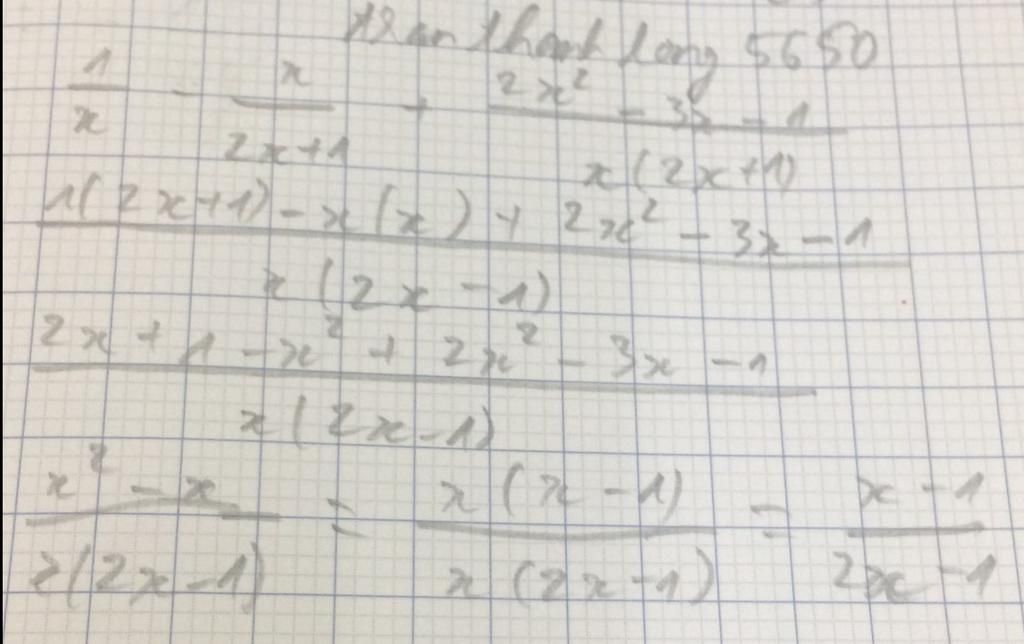 Tran thanh long 5650
1/x - x/(2x+1) + (2x² - 3x - 1)/(x(2x+1))
(1(2x+1) - x(x) + 2x² - 3x - 1)/(x(2x-1))
(2x + 1 - x² + 2x² - 3x - 1)/(x(2x-1))
(x² - x)/(x(2x-1)) = (x(x-1))/(x(2x-1)) = (x-1)/(2x-1)